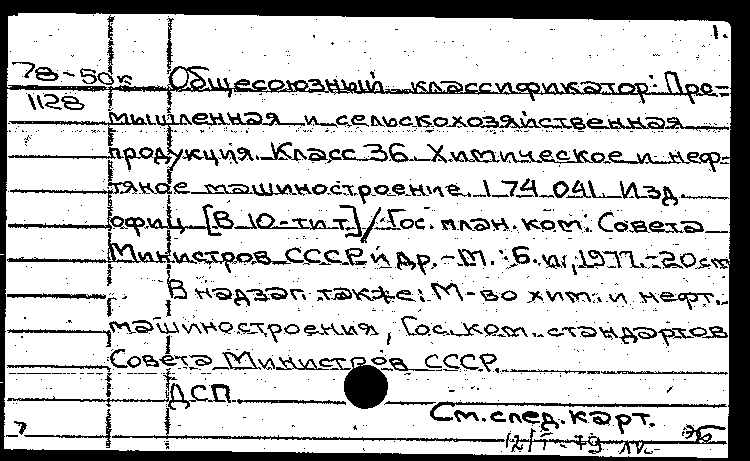 1.
78-50к
1128
Общесоюзный классификатор: Про=
мышленная и сельскохозяйственная
продукция. Класс 36. Химическое и неф-
тяное машиностроение. 1 74 041. Изд.
офиц [В 10-ти т.]/ Гос. план. ком. Совета
Министров СССР и др. - М.: Б. и., 1977. - 20 см
В надзаг. также: М-во хим. и нефт.
машиностроения, Гос. ком. стандартов
Совета Министров СССР.
ДСП.
См. след. карт.
7